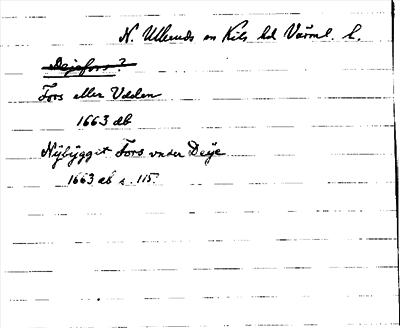 N. Ulleruds sn Kils hd Värml. l.
Dejefors?
Fors eller Udden
1663 ab
Nÿbÿggit Fors under Deÿe
1663 ab s. 115.